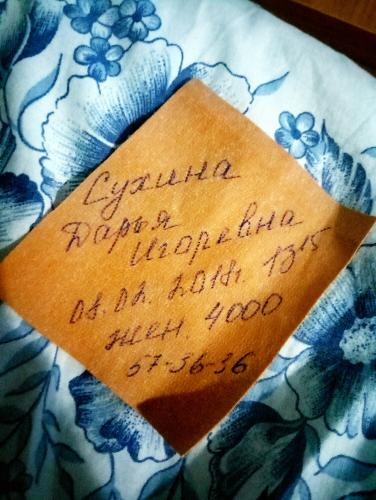 Сухина
Дарья
Игоревна
08.02.2018г. 13 15
жен. 4000
57-36-36